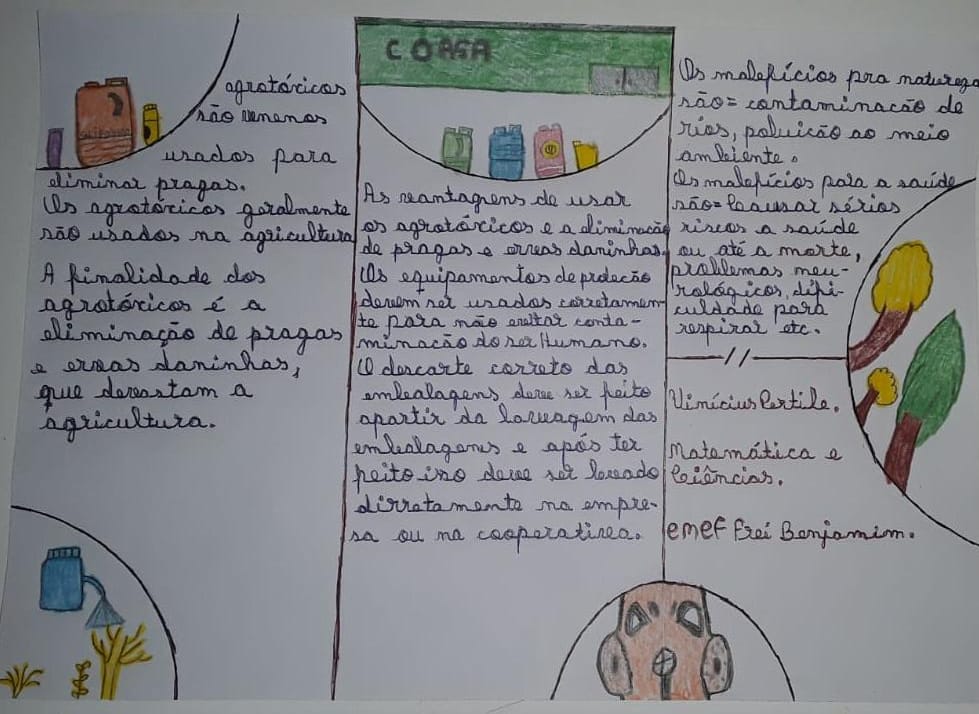 agrotóxicos
são venenos
usados para
eliminar pragas.
Os agrotóxicos geralmente
são usados na agricultura
A finalidade dos
agrotóxicos é a
eliminação de pragas
e ervas daninhas,
que devastam a
agricultura.
COASA
As vantagens de usar
os agrotóxicos e a eliminação
de pragas e ervas daninhas.
Os equipamentos de proteção
devem ser usados corretamen-
te para não evitar conta-
minacão do ser Humano.
O descarte correto das
embalagens deve ser feito
apartir da lavagem das
embalagens e após ter
feito isso deve ser levado
dirretamente na empre-
sa ou na cooperativa.
Os malefícios pra natureza
são= contaminacão de
rios, poluicão ao meio
ambiente.
Os malefícios para a saúde
são= causar sérios
riscos a saúde
ou até a morte,
problemas neu-
rológicos, difi-
culdade para
respirar etc.
Vinícius Pertile.
Matemática e
Ciências.
emef Frei Benjamim.